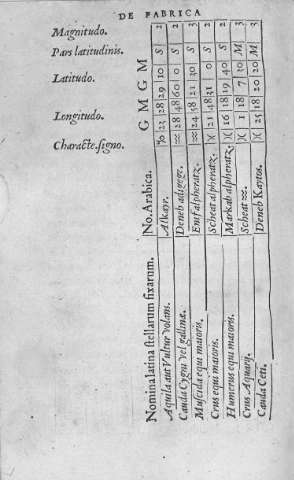 DE FABRICA
Magnitudo.
Pars latitudinis.
Latitudo.
Longitudo.
Characte. signo.
Nomina latina stellarum fixarum. No. Arabica. G M G M
Aquila aut Vultur volans. Alkayr. ♑ 23 28 29 10 S 2
Cauda Cygni vel gallinæ. Deneb adigege. ♒ 28 48 60 0 S 2
Muscida equi maioris. Enif alpheratz. ♒ 24 38 21 30 S 3
Crus equi maioris. Scheat alpheratz. ♓ 21 48 31 0 S 2
Humerus equi maioris. Markab alpheratz. ♓ 16 18 19 40 S 2
Crus Aquarij. Scheat ♒. ♓ 1 18 7 30 M 3
Cauda Ceti. Deneb Kaytos. ♓ 25 18 20 20 M 3